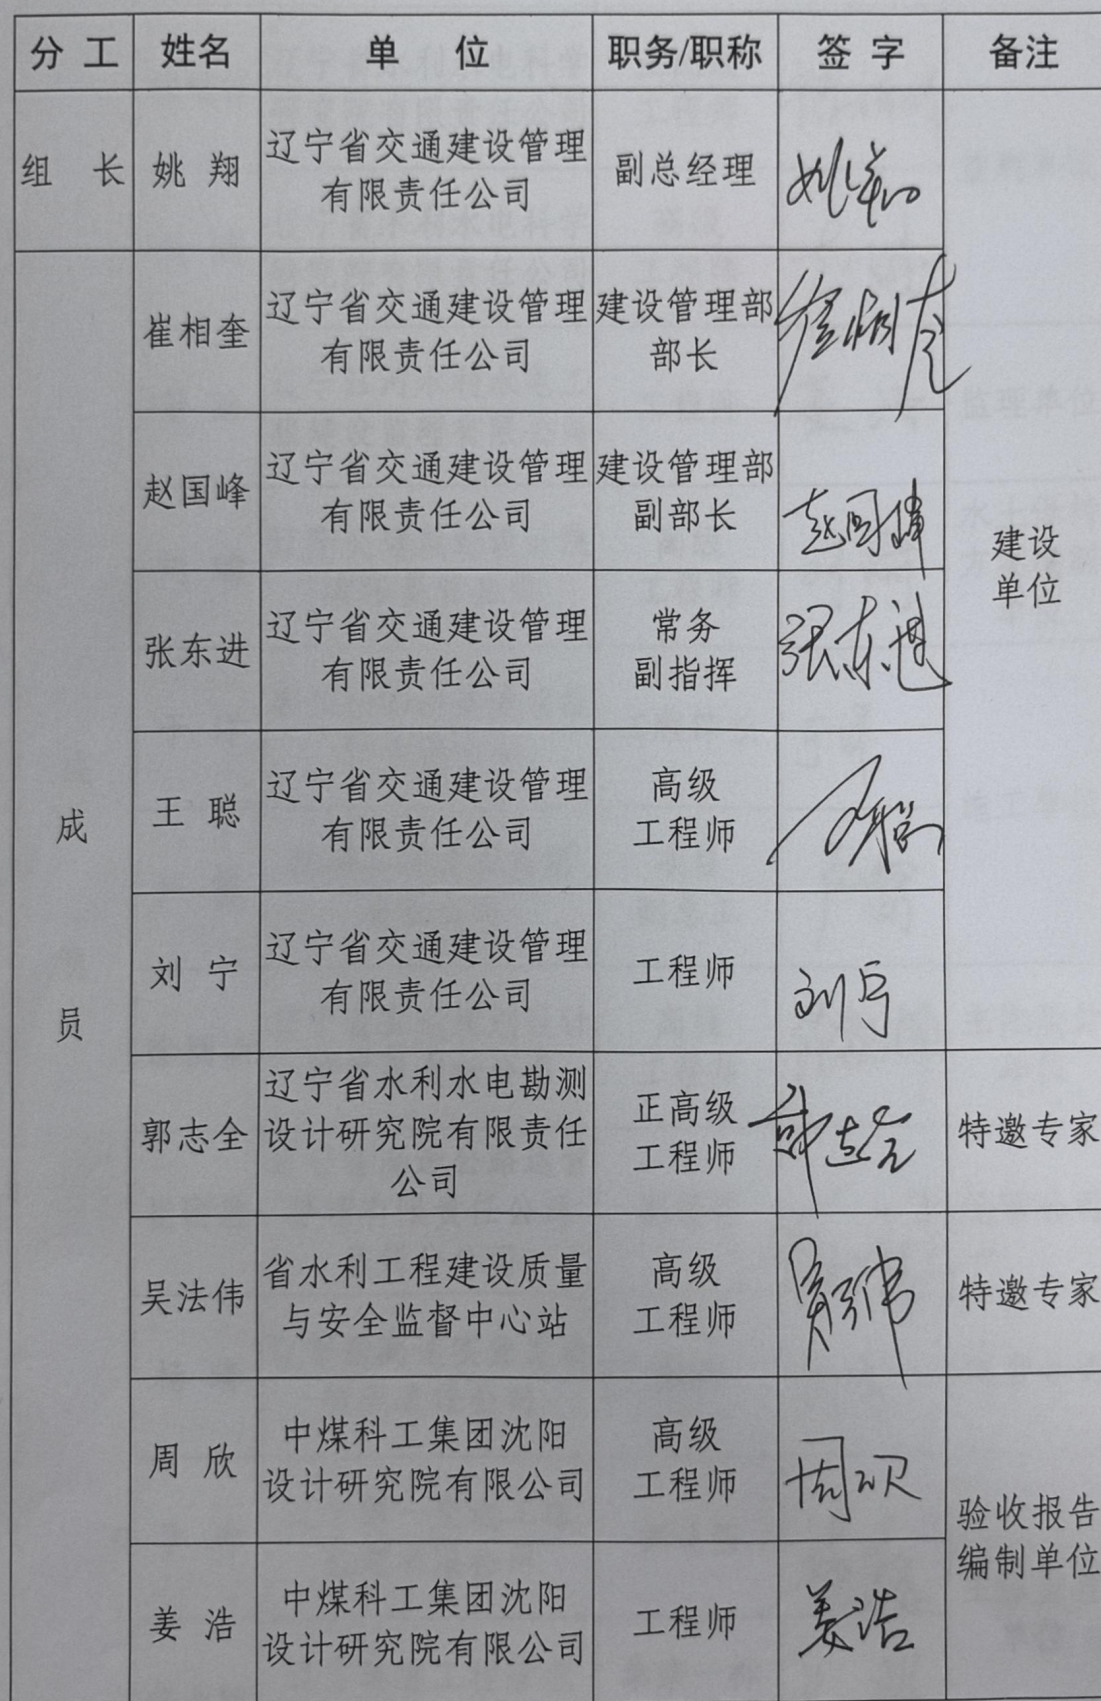 分 工 姓名 单 位 职务/职称 签 字 备注
组 长 姚 翔 辽宁省交通建设管理
有限责任公司 副总经理 姚翔
崔相奎 辽宁省交通建设管理
有限责任公司 建设管理部
部长 崔相奎
赵国峰 辽宁省交通建设管理
有限责任公司 建设管理部
副部长 赵国峰
建设
单位
张东进 辽宁省交通建设管理
有限责任公司 常务
副指挥 张东进
王 聪 辽宁省交通建设管理
有限责任公司 高级
工程师 王聪
成
员
刘 宁 辽宁省交通建设管理
有限责任公司 工程师 刘宁
郭志全 辽宁省水利水电勘测
设计研究院有限责任
公司 正高级
工程师 郭志全 特邀专家
吴法伟 省水利工程建设质量
与安全监督中心站 高级
工程师 吴法伟 特邀专家
周 欣 中煤科工集团沈阳
设计研究院有限公司 高级
工程师 周欣
验收报告
编制单位
姜 浩 中煤科工集团沈阳
设计研究院有限公司 工程师 姜浩